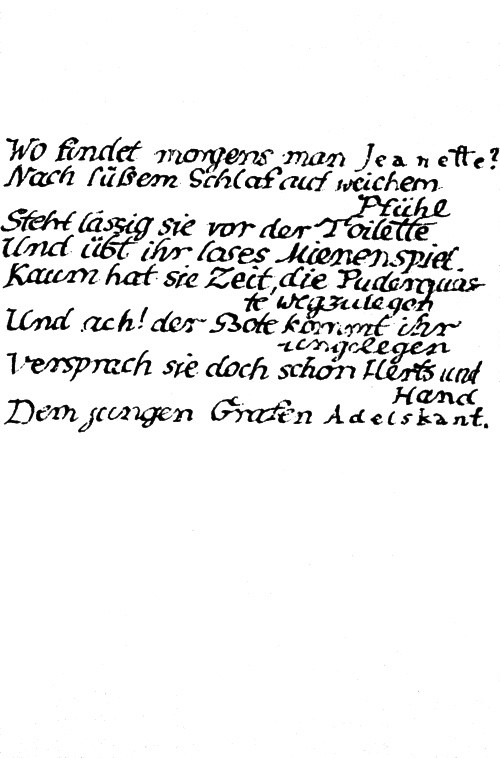 Wo findet morgens man Jeanette?
Nach süßem Schlaf auf weichem
Pfühl
Steht lässig sie vor der Toilette
Und übt ihr loses Mienenspiel.
Kaum hat sie Zeit, die Puderquas-
te wegzulegen
Und ach! der Bote kommt ihr
ungelegen
Versprach sie doch schon Herts und
Hand
Dem jungen Grafen Adelskant.